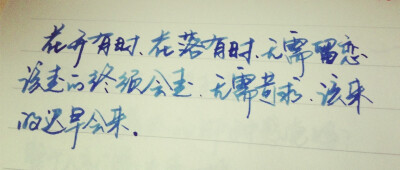 花开有时,花落有时,无需留恋
该走的终须会走,无需苛求,该来
的迟早会来。